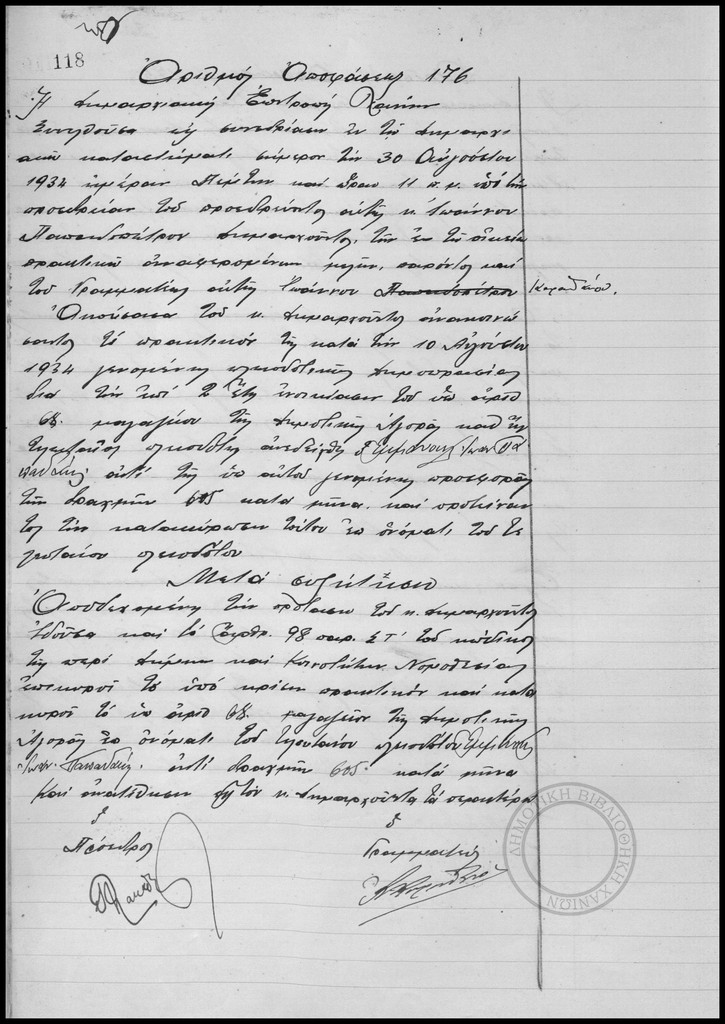 118
Ἀριθμός Ἀποφάσεως 176
Ἡ Δημαρχιακή Ἐπιτροπή Χανίων
Συνελθοῦσα εἰς συνεδρίασιν ἐν τῷ Δημαρχι
ακῷ καταστήματι σήμερον τήν 30 Αὐγούστου
1934 ἡμέραν Πέμπτην καί ὥραν 11 π.μ. ὑπό τήν
προεδρείαν τοῦ προεδρεύοντος αὐτῆς κ. Ἰωάννου
Παπαδοπέτρου Δημαρχοῦντος, τῶν ἐν τῷ οἰκείῳ
πρακτικῷ ἀναφερομένων μελῶν, παρόντος καί
τοῦ Γραμματέως αὐτῆς Ἰωάννου Παπαδοπέτρου
Ἀκούσασα τοῦ κ. Δημαρχοῦντος ἀνακοινώ
σαντος τό πρακτικόν τῆς κατά τήν 10 Αὐγούστου
1934 γενομένης πλειοδοτικῆς Δημοπρασίας
διά τήν ἐπί 2 ἔτη ἐνοικίασιν τοῦ ὑπ' ἀριθ
68. μαγαζείου τῆς Δημοτικῆς Ἀγορᾶς καθ' ἥν
τελευταῖος πλειοδότης ἀνεδείχθη ὁ Ἐμμανουήλ Ἰωαν. Πα
παδάκης ἀντί τῆς ὑπ' αὐτοῦ γενομένης προσφορᾶς
τῶν δραχμῶν 605 κατά μῆνα καί προτείναν
τος τήν κατακύρωσιν τούτου ἐπ' ὀνόματι τοῦ τε
λευταίου πλειοδότου
Μετά συζήτησιν
Ἀποδεχομένη τήν πρότασιν τοῦ κ. Δημαρχοῦντος
Ἰδοῦσα καί τό ἄρθρ. 98 παρ. ΣΤ' τοῦ κώδικος
τῆς περί Δήμων καί Κοινοτήτων Νομοθεσίας
ἐπικυροῖ τό ὑπό κρίσιν πρακτικόν καί κατα
κυροῖ τό ὑπ' ἀριθ 68. μαγαζεῖον τῆς Δημοτικῆς
Ἀγορᾶς ἐπ' ὀνόματι τοῦ τελευταίου πλειοδότου Ἐμμανουήλ
Ἰωαν. Παπαδάκη. ἀντί δραχμῶν 605 κατά μῆνα
Καί ἀνατίθησιν εἰς τόν κ. Δημαρχοῦντα τά περαιτέρω
ὁ ὁ
Πρόεδρος Γραμματεύς
ΔΗΜΟΤΙΚΗ ΒΙΒΛΙΟΘΗΚΗ ΧΑΝΙΩΝ